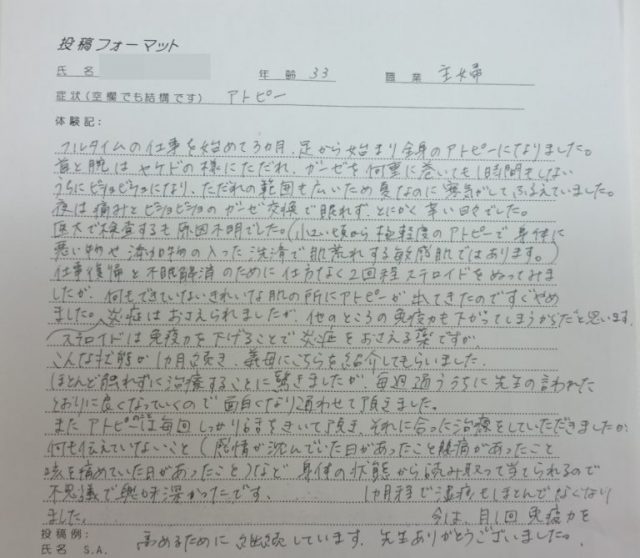 投稿フォーマット
氏名 年齢 33 職業 主婦
症状(空欄でも結構です) アトピー
体験記:
フルタイムの仕事を始めて3カ月、足から始まり全身のアトピーになりました。
首と腕はヤケドの様にただれ、ガーゼを何重に巻いても1時間もしない
うちにビショビショになり、ただれの範囲も広いため夏なのに寒気がしてふるえていました。
夜は痛みとビショビショのガーゼ交換で眠れず、とにかく辛い日々でした。
医大で検査するも原因不明でした。(小さい頃から極軽度のアトピーで身体に
悪い物や添加物の入った洗済で肌荒れする敏感肌ではあります。)
仕事復帰と不眠解消のために仕方なく2回程ステロイドをぬってみま
したが、何もできていないきれいな肌の所にアトピーが出てきたのですぐやめ
ました。炎症はおさえられましたが、他のところの免疫力も下がってしまうからだと思います。
ステロイドは免疫力を下げることで炎症をおさえる薬ですが、
こんな状態が1カ月続き、義母にこちらを紹介してもらいました。
ほとんど触れずに治療することに驚きましたが、毎週通ううちに先生の言われた
とおりに良くなっていくので面白くなり通わせて頂きました。
またアトピーのことは毎回しっかり話をきいて頂き、それに合った治療をしていただきましたが
何も伝えていないこと(感情が沈んでいた日があったこと 腰痛があったこと
咳を痛めていた日があったこと)など身体の状態から読み取って当てられるので
不思議で興味深かったです。 1カ月程で湿疹もほとんどなくなり
ました。 今は、月1回免疫力を
投稿例: 高めるために継続しています。先生ありがとうございました。
氏名 S.A.